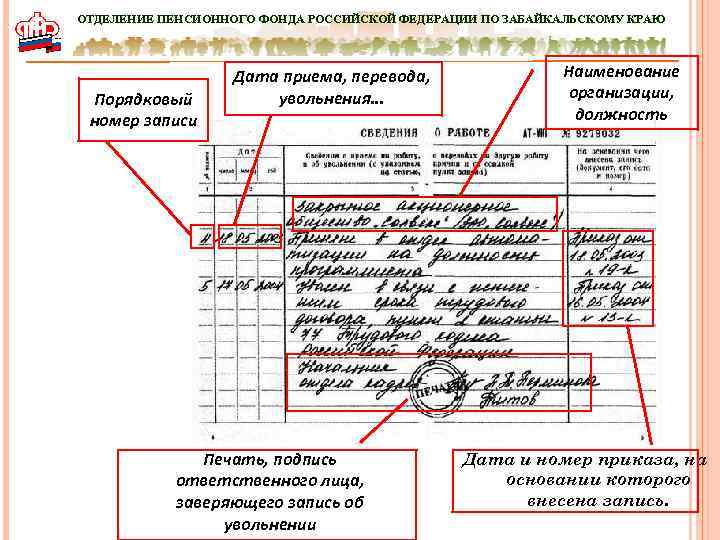 ОТДЕЛЕНИЕ ПЕНСИОННОГО ФОНДА РОССИЙСКОЙ ФЕДЕРАЦИИ ПО ЗАБАЙКАЛЬСКОМУ КРАЮ
Порядковый
номер записи
Дата приема, перевода,
увольнения...
Наименование
организации,
должность
СВЕДЕНИЯ О РАБОТЕ АТ-VIII № 9278032
№ записи
Дата
число месяц год
Сведения о приеме на работу,
о переводах на другую работу
и об увольнении (с указанием
причин и со ссылкой
на статью, пункт закона)
На основании чего
внесена запись
(документ, его дата
и номер)
1 2 3 3 4
Закрытое акционерное
общество
4 18 05 2003 Принят в отдел автома- Приказ от
тизации на должность 18.05.2003
программиста № 19-к
5 17 05 2004 Уволен в связи с истече- Приказ от
нием срока трудового 16.05.2004
договора, пункт 2 статьи № 13-к
77 Трудового кодекса
Российской Федерации
Начальник
отдела кадров
ПЕЧАТЬ
Титов
Печать, подпись
ответственного лица,
заверяющего запись об
увольнении
Дата и номер приказа, на
основании которого
внесена запись.